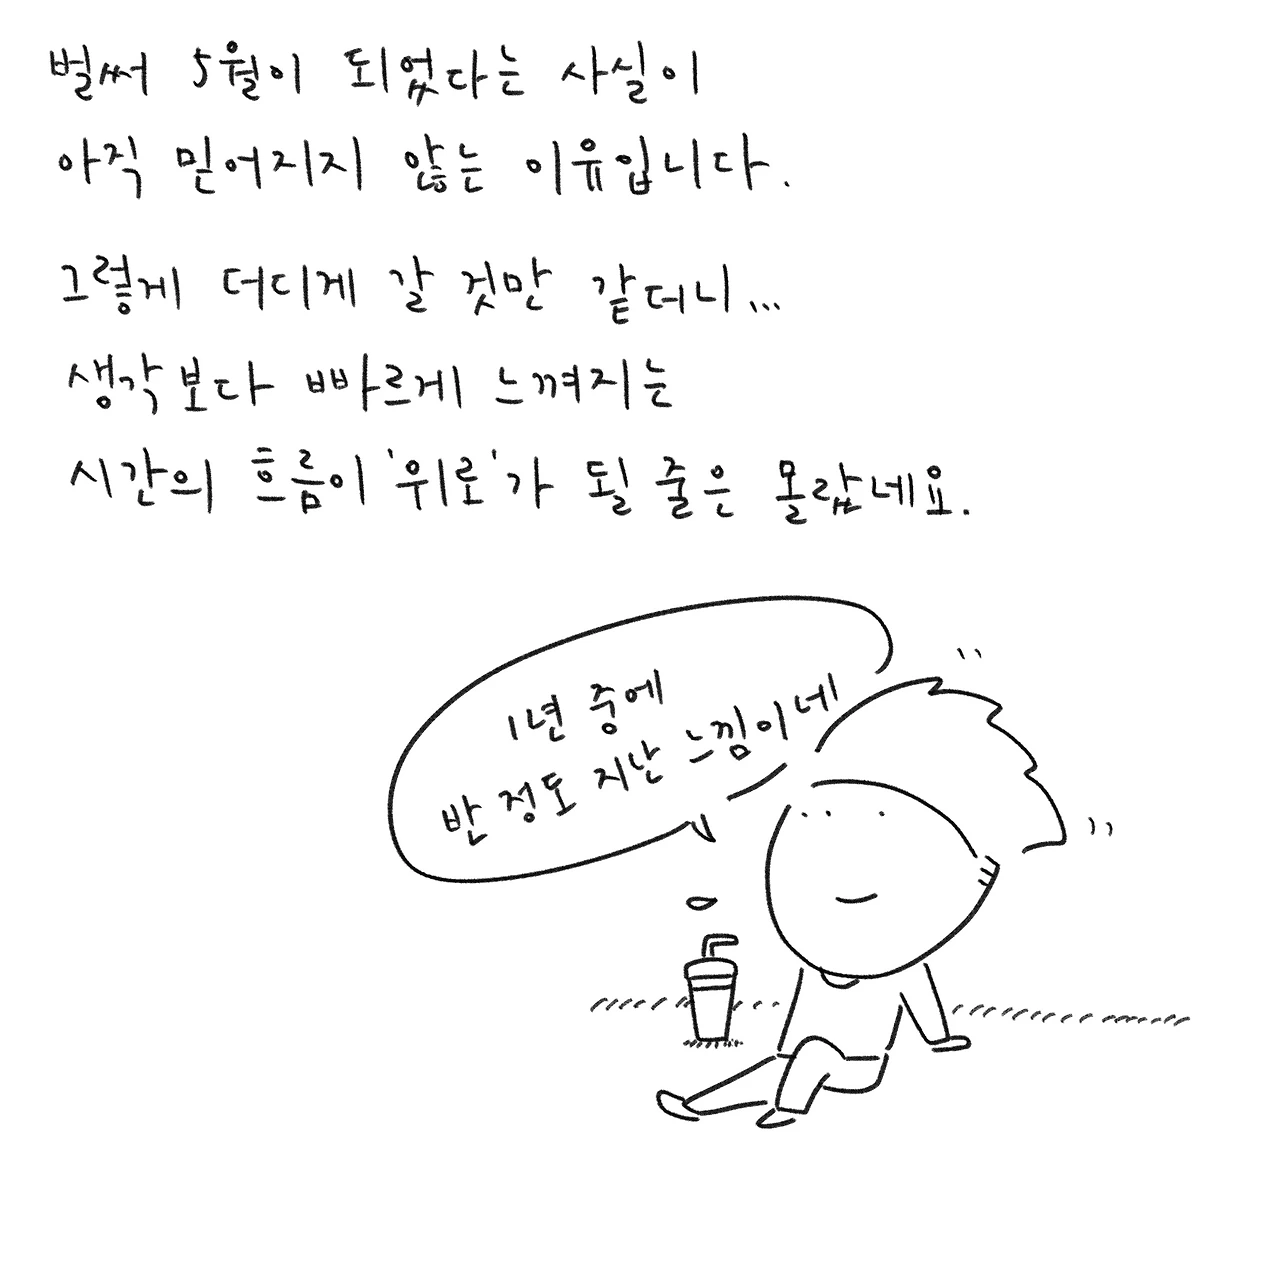 벌써 5월이 되었다는 사실이
아직 믿어지지 않는 이유입니다.
그렇게 더디게 갈 것만 같더니...
생각보다 빠르게 느껴지는
시간의 흐름이 '위로'가 될 줄은 몰랐네요.
1년 중에
반 정도 지난 느낌이네